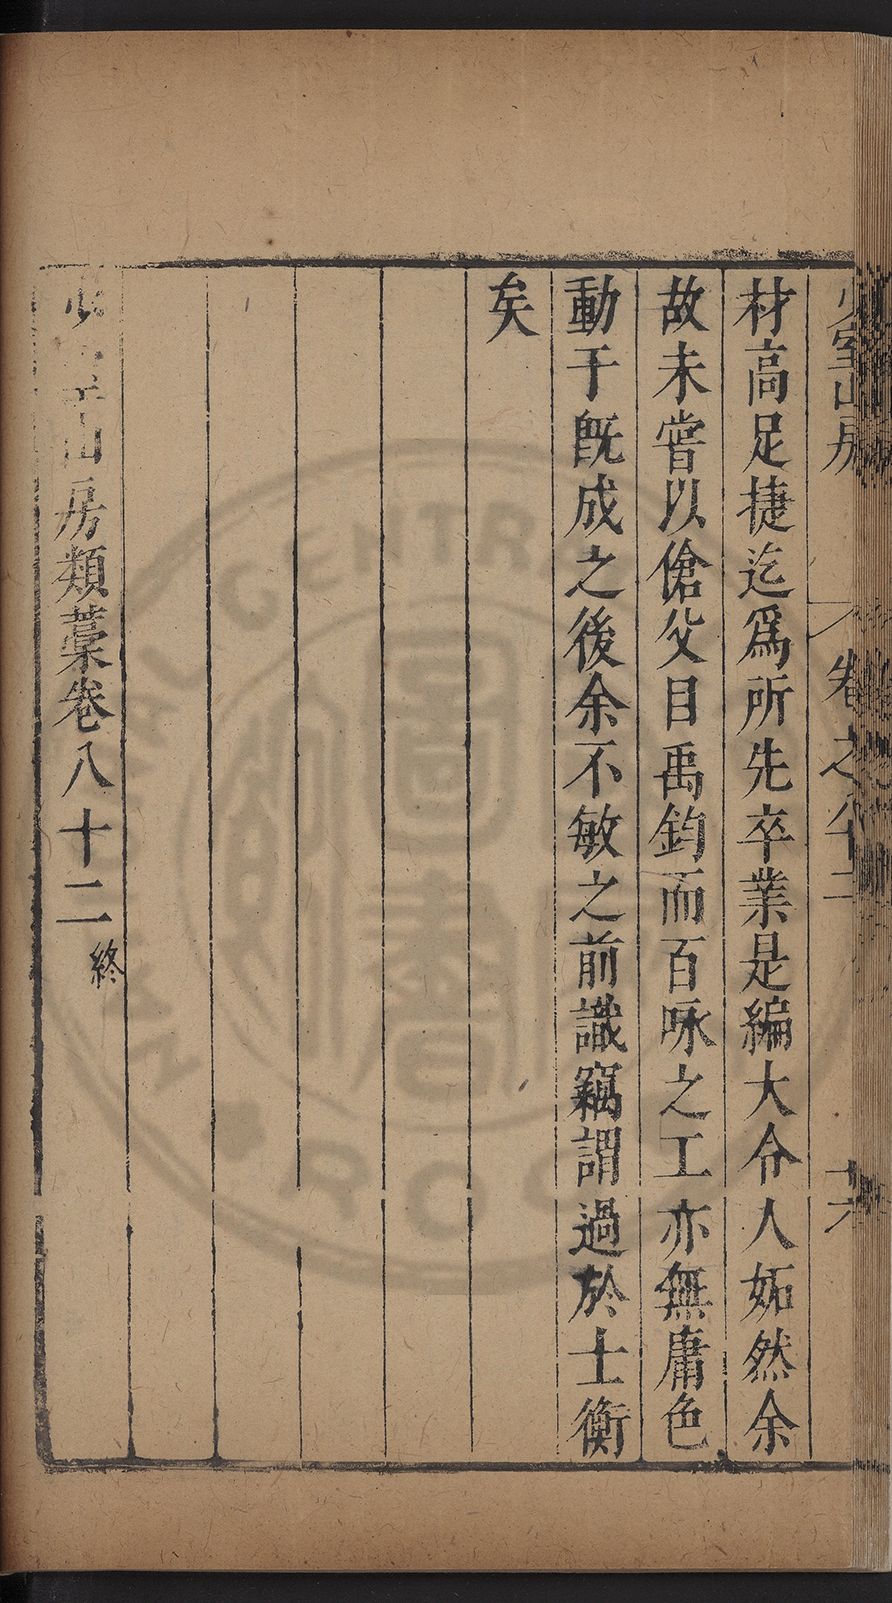 少室山房
卷之八十二
十六
材高足捷迄爲所先卒業是編大令人妬然余
故未嘗以傖父目禹鈞而百咏之工亦無庸色
動于旣成之後余不敏之前識竊謂過於士衡
矣
少室山房類藁卷八十二終